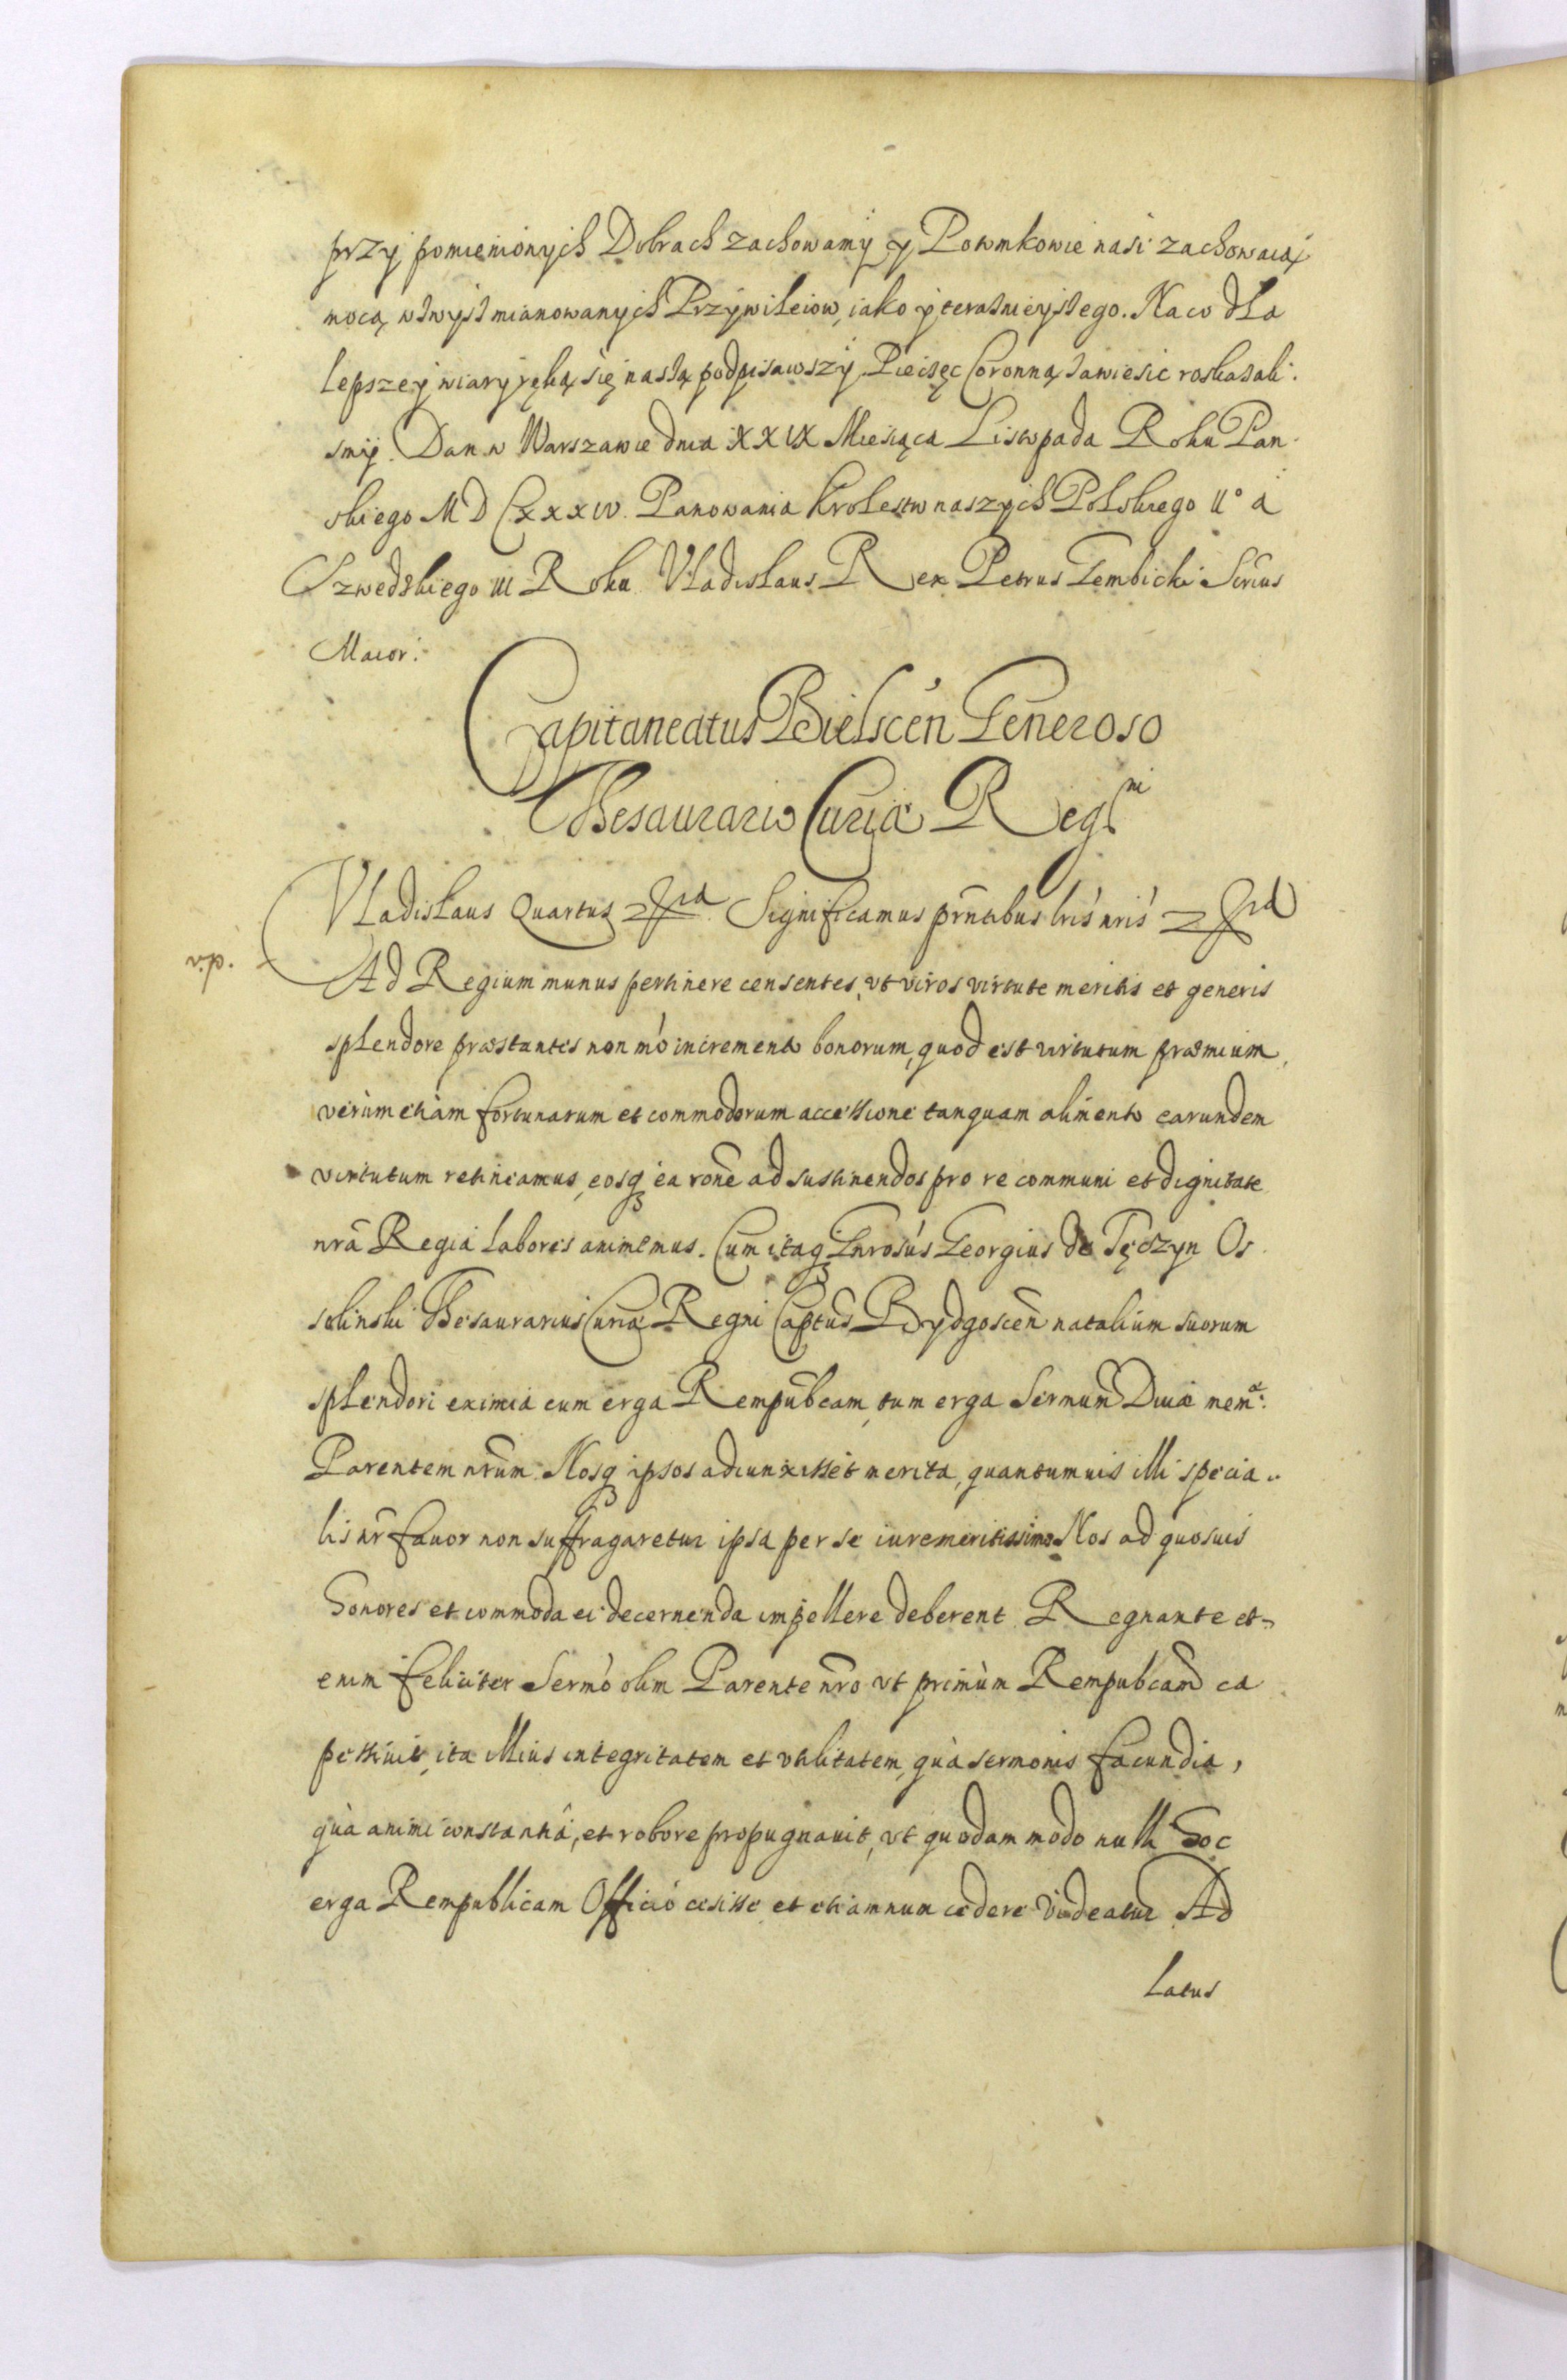 przÿ pomienionych Dobrach zachowamÿ y Potomkowie nasi zachowaią
mocą wzwysz mianowanych Przÿwileiow, iako ÿ teraznieyszego. Na co dla
lepszeÿ wiary ręką się naszą podpisawszÿ Pieczęc Coronną zawiesic roskazali
smÿ. Dan w Warszawie dnia XXIX Miesiąca Listopada Roku Pan
skiego MDCXXXIV. Panowania Krolestw naszych Polskiego II° a
Szwedzkiego III Roku Vladislaus Rex Petrus Gembicki Secrius
Maior.
Capitaneatus Bielscen Generoso
Thesaurario Curiæ Regni
Vladislaus Quartus &c Significamus pñtibus lris nris &c
v.p.
Ad Regium munus pertinere censentes, vt viros virtute meritis et generis
splendore præstantes non mo incremento bonorum, quod est virtutum præmium,
verùm etiàm fortunarum et commodorum accessione tanquam alimento earundem
virtutum retineamus, eosq ea rone ad sustinendos pro re communi et dignitate
nrã Regia labores animemus. Cum itaq Gnrosus Georgius de Tęczyn Os
solinski Thesaurarius Curiæ Regni Captus Bydgoscen natalium suorum
splendori eximia cum erga Rempubcam, tum erga Sermum Diuæ memæ:
Parentem nrum Nosq ipsos adiunxisset merita, quantumuis illi specia
lis nr fauor non suffragaretur ipsa per se iure meritissimo Nos ad quosuis
honores et commoda ei decernenda impellere deberent Regnante et
enim feliciter Sermo olim Parente nro vt primùm Rempubcam ca
pessiuit, ita illius integritatem et vtilitatem, quà sermonis facundia,
quà animi constantiâ, et robore propugnauit, vt quodam modo nulli hoc
erga Rempublicam Officio cesisse et etiamnum cedere videatur Ad
latus